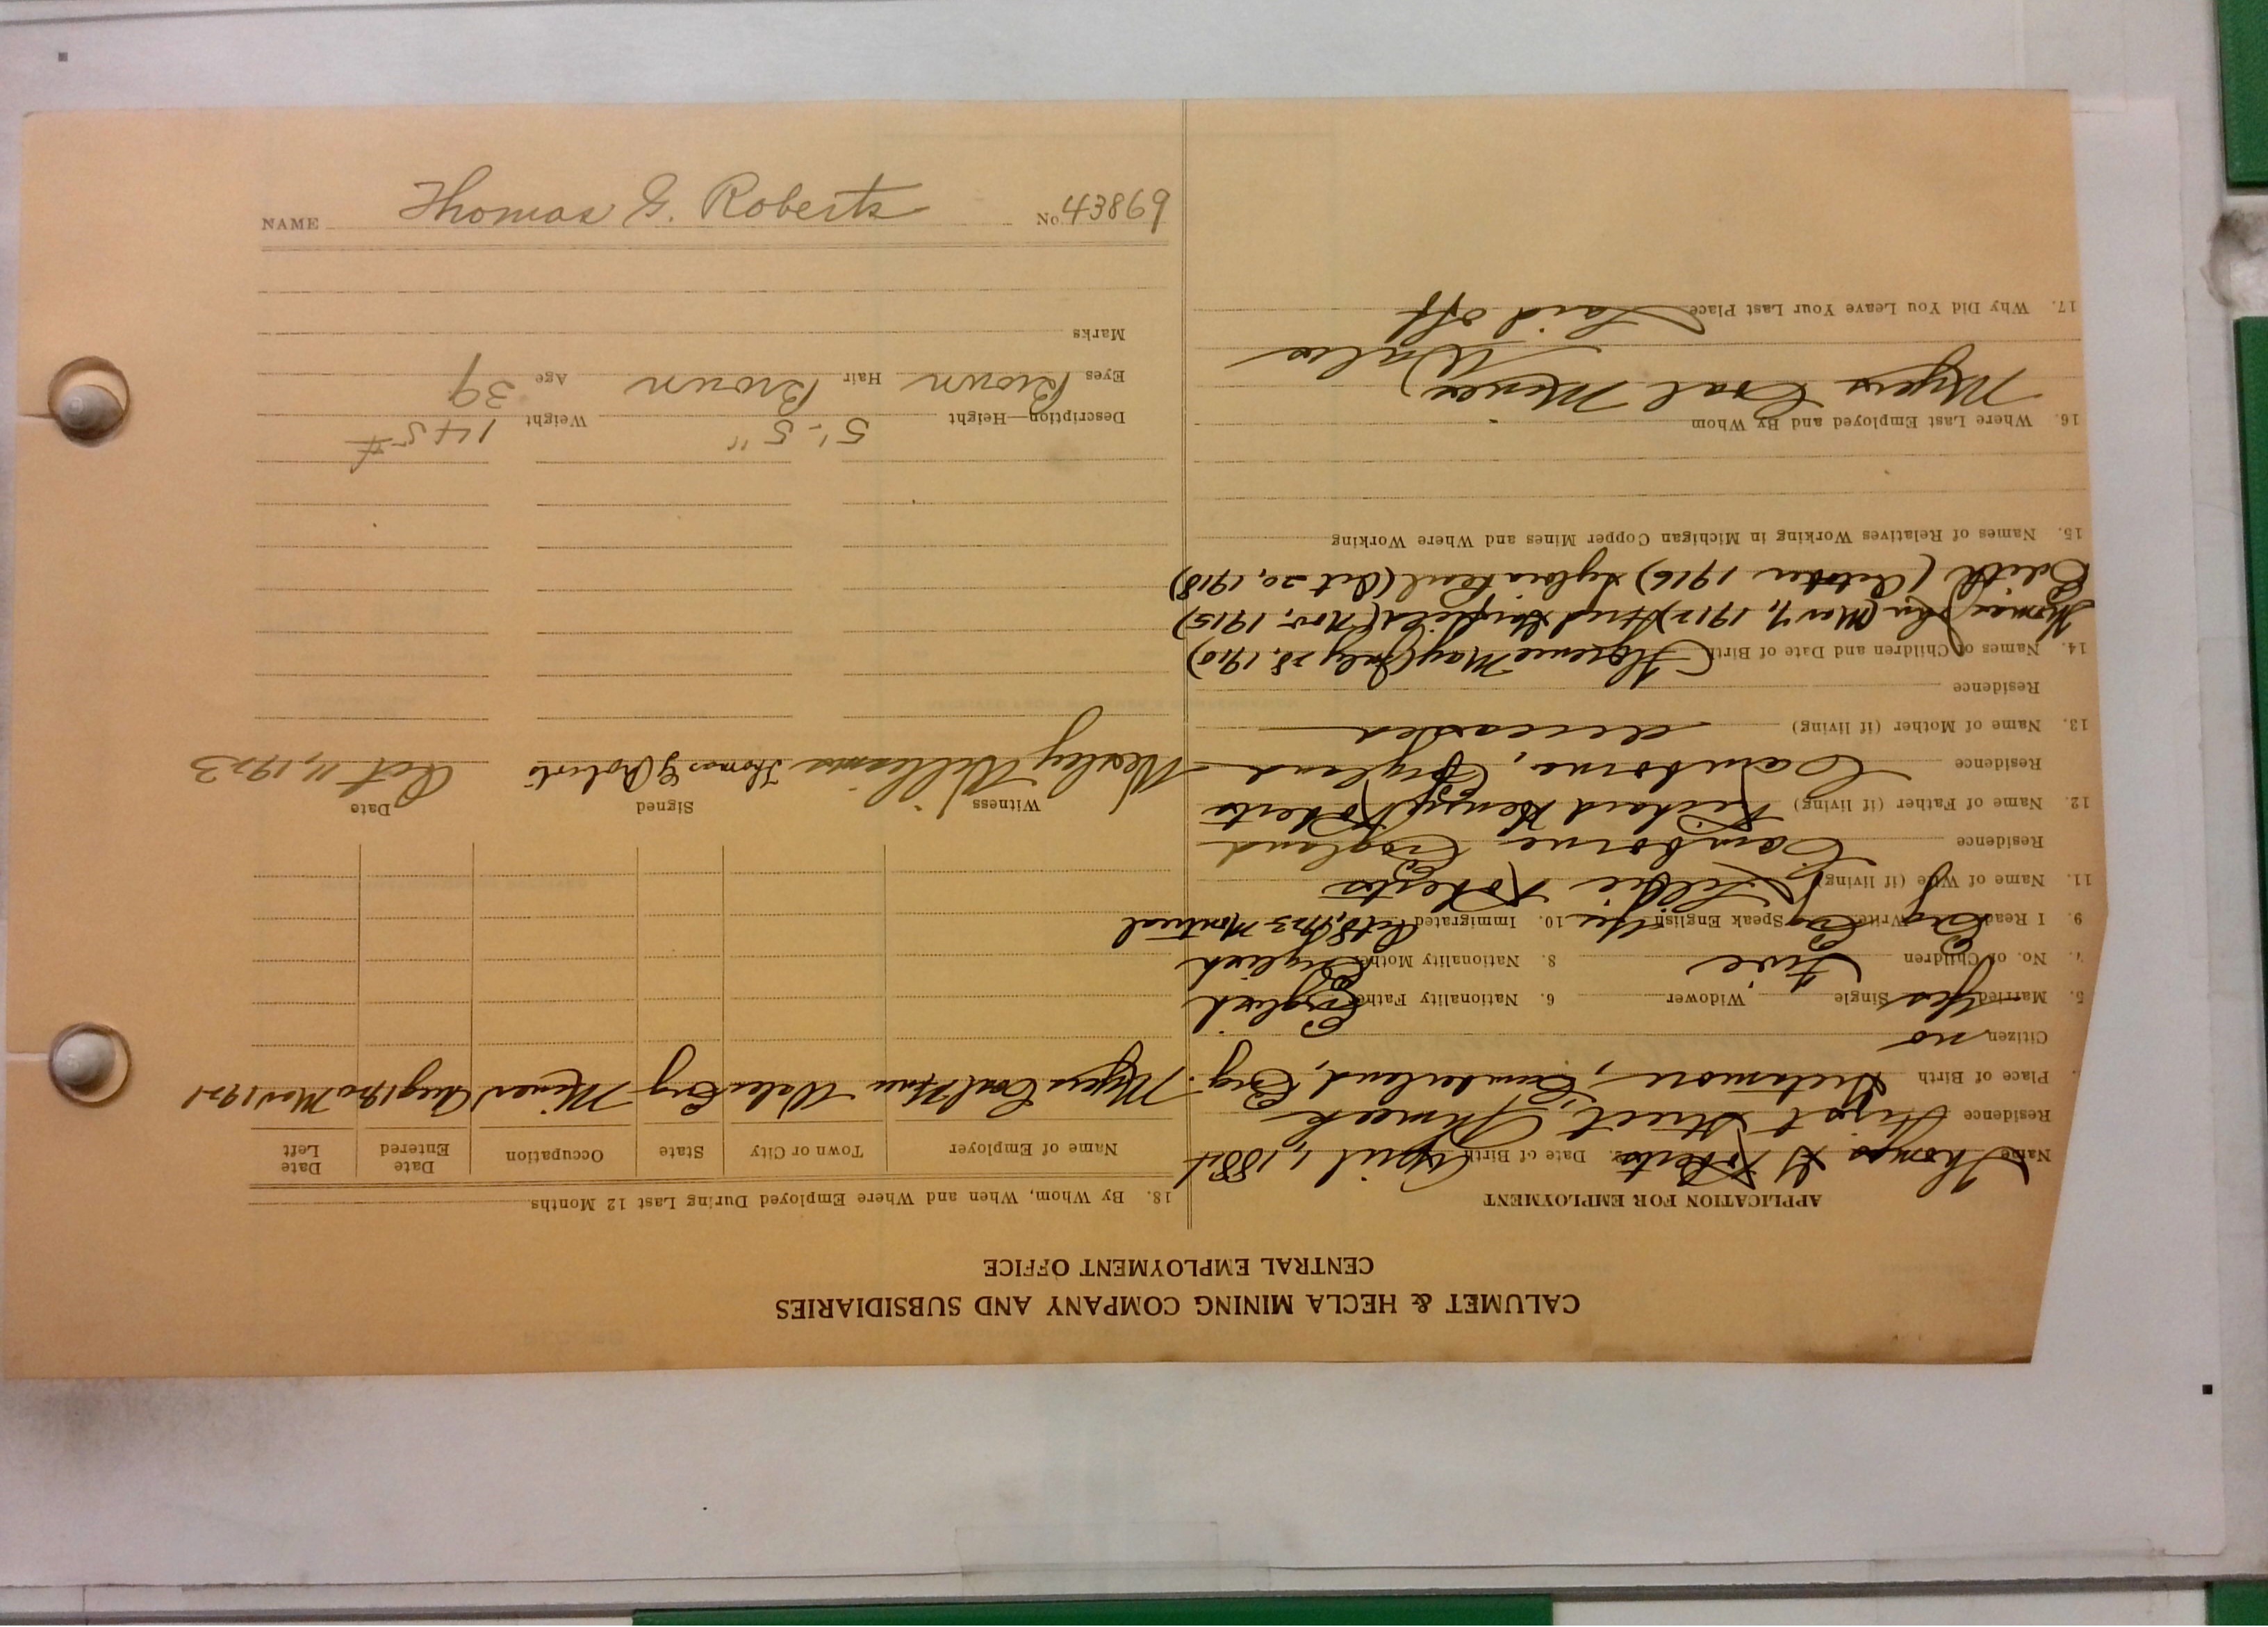 CALUMET & HECLA MINING COMPANY AND SUBSIDIARIES
CENTRAL EMPLOYMENT OFFICE
APPLICATION FOR EMPLOYMENT
Name Thomas G Roberts 2. Date of Birth April 1, 1884
Residence First Street, Ahmeek
Place of Birth Dictamore, Cumberland, Eng.
Citizen no
5. Married Yes Single Widower 6. Nationality Father English
7. No. of Children Five 8. Nationality Mother English
9. I Read Eng Write Eng Speak English Yes 10. Immigrated Oct 8, 1923 Montreal
11. Name of Wife (if living) Lillie Roberts
Residence Camborne England
12. Name of Father (if living) Richard Henry Roberts
Residence Camborne, England
13. Name of Mother (if living) deceased
Residence
14. Names of Children and Date of Birth Florence May (July 28, 1910)
Thomas John (Mar 7, 1912) Fred Garfield (Nov, 1915)
Edith (October 1916) Sylvia Pearl (Oct 20, 1918)
15. Names of Relatives Working in Michigan Copper Mines and Where Working
16. Where Last Employed and By Whom
Myers Coal Mines, Wales
17. Why Did You Leave Your Last Place Laid off
18. By Whom, When and Where Employed During Last 12 Months.
Name of Employer Town or City State Occupation Date Entered Date Left
Myers Coal Mine Wales Eng Miner Aug 1920 Mar 1921
Witness Signed Date
Wesley Williams Thomas G Roberts Oct 11, 1923
Description—Height 5'-5" Weight 145#
Eyes Brown Hair Brown Age 39
Marks
NAME Thomas G. Roberts No. 43869